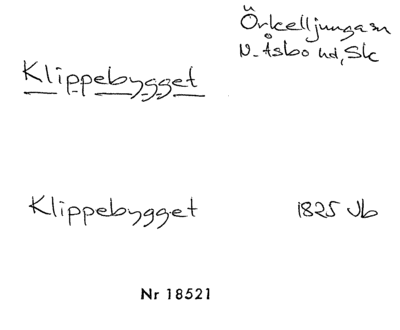 Örkelljunga sn
Klippebygget
N. Åsbo hd, Sk
Klippebygget
1825 Jb
Nr 18521